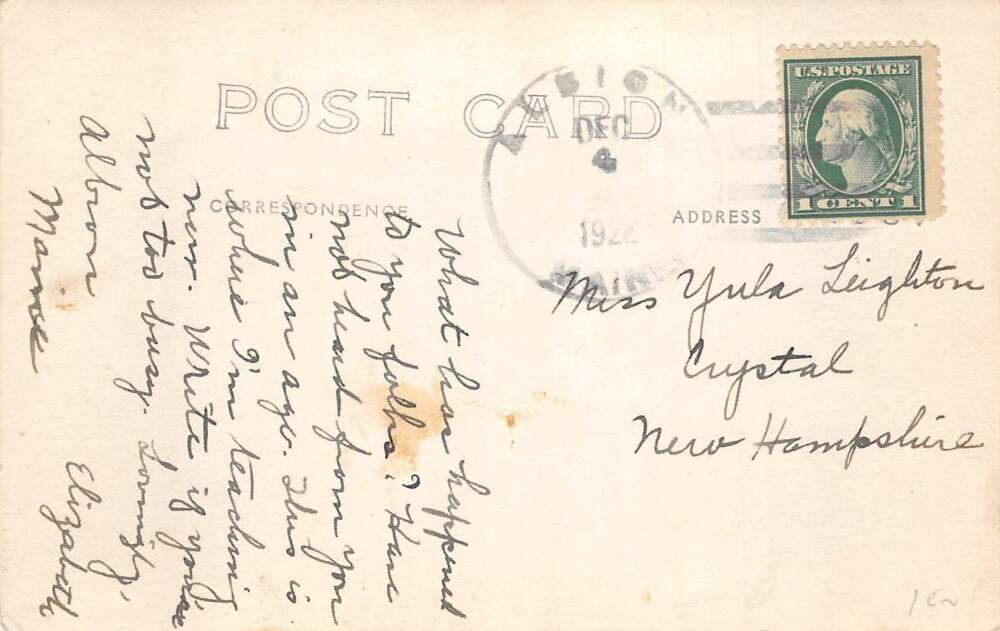 POST CARD
CORRESPONDENCE
ADDRESS
U.S. POSTAGE
1 CENT 1
ALBION
DEC
4
1922
MAINE
Miss Yula Leighton
Crystal
New Hampshire
What has happened
to you folks? Have
not head from you
in an age. This is
where I'm teaching
now. Write if you're
not too busy. Lovingly,
Elizabeth
Albion
Maine